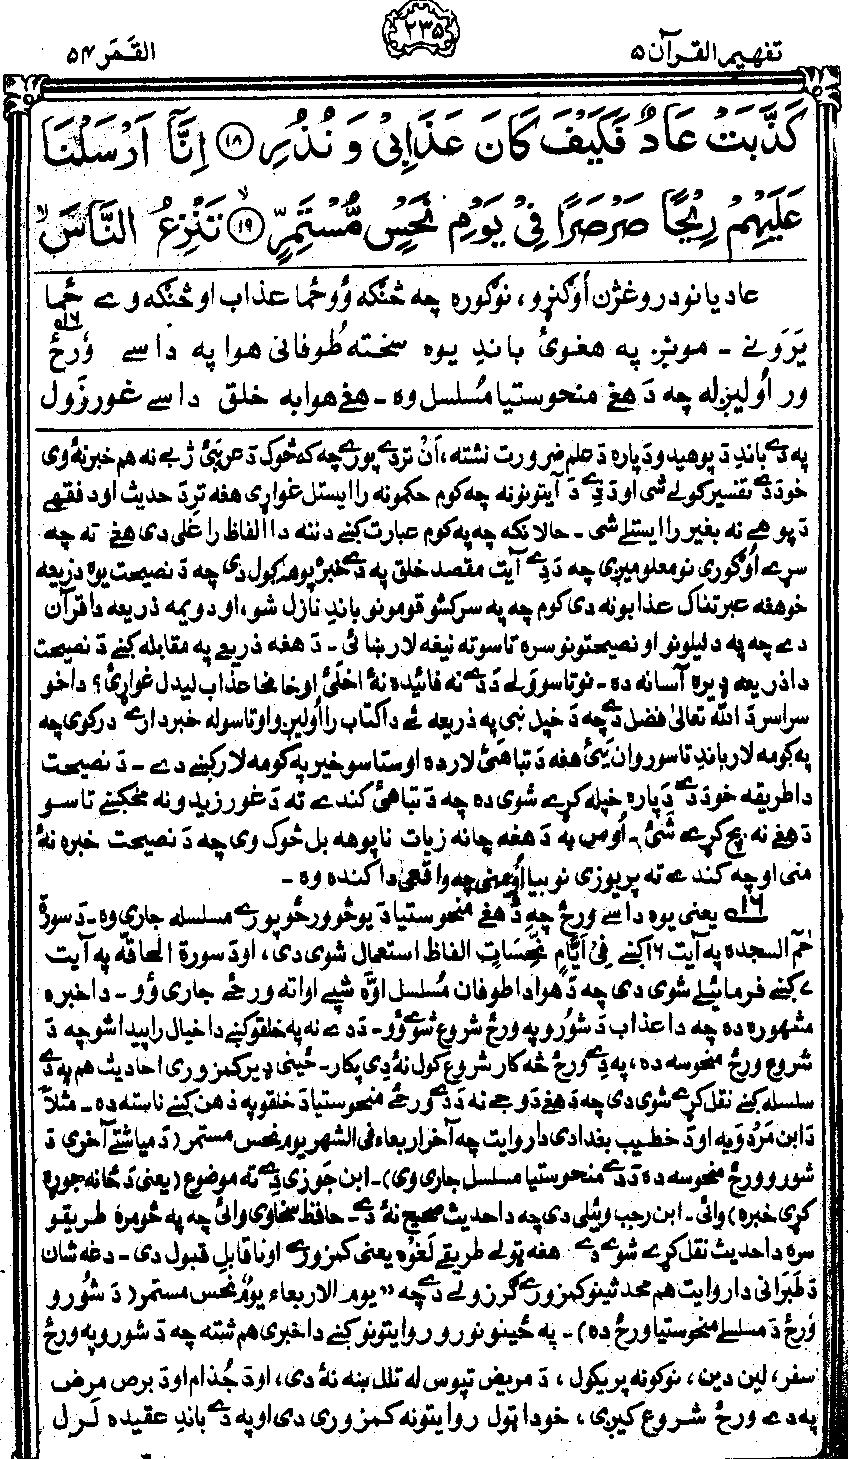 تفهیم القرآن ۵
۲۳۵
القَمَر ۵۴
كَذَّبَتْ عَادٌ فَكَيْفَ كَانَ عَذَابِيْ وَ نُذُرِ ﴿۱۸﴾ اِنَّآ اَرْسَلْنَا
عَلَيْهِمْ رِيْحًا صَرْصَرًا فِيْ يَوْمِ نَحْسٍ مُّسْتَمِرٍّ ﴿۱۹﴾ۙ تَنْزِعُ النَّاسَۙ
عادیانو دروغژن اُوګنړو، نو ګوره چه څنګه وُو ځما عذاب او څنګه وے ځما
یَرَوَنے ۔ مونږ په هغویٔ باندِ یوه سخته طُوفانی هوا په داسے وَرځ
ور اُولیږله چه دَ هغے منحوستیا مُسلسل وه ۔ هغے هوا به خلق داسے غورزَول
په دے باندِ دَ پوهیدو دَپاره دَ علم ضرورت نشته، اَن تردے پورے چه که څوک دَ عربیٔ ژبے نه هم خبر نهٔ وی
خو دَدے تفسیر کولے شی او دَ دے آیتونو نه چه کوم حکمونه را ایستل غواړی هغه تر دَ حدیث او د فقهے
دَ پوهے نه بغیر را ایستلے شی ۔ حالانکه چه په کوم عبارت کښے دننه دا الفاظ راغلی دی هغے ته چه
سرے اُوګوری نو معلومیږی چه دَ دے آیت مقصد خلق په دے خبره پوهه کول دی چه دَ نصیحت یوه ذریعه
خو هغه عبرتناک عذابونه دی کوم چه په سرکشو قومونو باندِ نازل شو، او دویمه ذریعه دا قرآن
دے چه په دلیلونو او نصیحتونو سره تاسو ته نیغه لار ښائی ۔ دَ هغه ذریعے په مقابله کښے دَ نصیحت
دا ذریعه ډیره آسانه ده ۔ نو تاسو وَلے دَ دے نه فائیده نهٔ اخلئ او خامخا عذاب لیدل غواړئ؟ دا خو
سراسر دَ اللّٰه تعالیٰ فضل دے چه دَ خپل نبی په ذریعه ئے دا کتاب را اُولیږو او تاسو له خبردارے ورکوی چه
په کومه لار باندِ تاسو روان یَئ هغه دَ تباهئ لار ده او ستاسو خیر په کومه لار کښے دے ۔ دَ نصیحت
دا طریقه خو دَ دے دَپاره خپله کړے شوی ده چه دَ تباهئ کندے ته دَ غورزیدو نه مخکښے تاسو
دَ هغے نه بچ کړے شئ ۔ اُوس به دَ هغه چا نه زیات ناپوهه بل څوک وی چه دَ نصیحت خبره نهٔ
منی او چه کندے ته پریوزی نو بیا اُومنی چه واقعی دا کنده وه ۔
۱۶ یعنی یوه داسے ورځ چه دَ هغے منحوستیا دَ یو څو ورځو پورے مسلسله جاری وه ۔ دَ سورة
حٰمٓ السجده په آیت ۱۶ کښے فِيْ اَيَّامٍ نَّحِسَاتٍ الفاظ استعمال شوی دی، او دَ سورة الحاقّه په آیت
۷ کښے فرمائیلے شوی دی چه دَ هوا دا طوفان مُسلسل اوهٔ شپے او اته ورځے جاری وُو ۔ دا خبره
مشهوره ده چه دا عذاب دَ شورو په ورځ شروع شوے وُو ۔ دَدے نه په خلقو کښے دا خیال راپیدا شو چه دَ
شروع ورځ منحوسه ده، په دے ورځ څه کار شروع کول نهٔ دِی پکار ۔ ځینی ډیر کمزوری احادیث هم په دے
سلسله کښے نقل کړے شوی دی چه دَ هغے دَ وجے نه دَ دے ورځے منحوستیا دَ خلقو په ذهن کښے ناسته ده ۔ مثلاً
دَ ابن مَردُوَیه او دَ خطیب بغدادی دا روایت چه آخر اربعاء فی الشهر یوم نحس مستمر (دَ میاشتے آخری دَ
شورو ورځ منحوسه ده دَ دے منحوستیا مسلسل جاری وی) ۔ ابن جَوزی دے ته موضوع (یعنی دَ ځانه جوړه
کړی خبره) وائی ۔ ابن رجب وئیلی دی چه دا حدیث صحیح نهٔ دے ۔ حافظ سخاوی وائی چه په څومره طریقو
سره دا حدیث نقل کړے شوے دے هغه ټولے طریقے لَغوه یعنی کمزورے او ناقابلِ قبول دی ۔ دغه شان
دَ طَبَرانی دا روایت هم محدثینو کمزورے ګرزولے دے چه "یوم الاربعاء یومُ نحس مستمر (دَ شورو
وَرځ دَ مسلسلے منحوستیا ورځ ده) ۔ په ځینو نورو روایتونو کښے دا خبری هم شته چه دَ شورو په ورځ
سفر، لین دین، نوکونه پریکول، دَ مریض تپوس له تلل ښه نهٔ دی، او دَ جُذام او دَ برص مرض
په دے ورځ شروع کیږی، خو دا ټول روایتونه کمزوری دی او په دے باندِ عقیده لرل